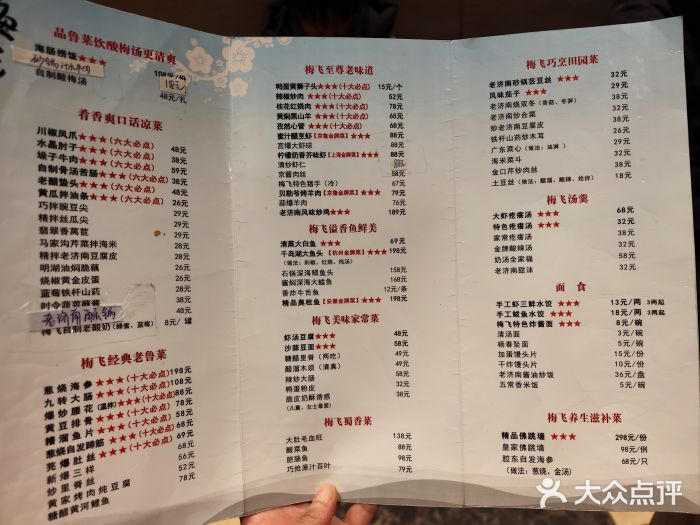 品鲁菜饮酸梅汤更清爽
海肠捞饭★★★ 108元/份
自制酸梅汤 48元/扎
肴香爽口话凉菜
川椒凤爪★★★(六大必点) 48元
水晶肘子★★★(六大必点) 38元
垛子牛肉★★★(六大必点) 59元
自制骨汤苦肠★★★(六大必点) 39元
老醋蛰头★★★(六大必点) 68元
黄瓜拌油条★★★(六大必点) 26元
巧拌豌豆尖 29元
精拌丝瓜尖 29元
翡翠香莴苣 29元
马家沟芹菜拌海米 28元
精拌老济南豆腐皮 28元
明湖油焖脆藕 28元
烧椒黄金皮蛋 28元
蓝莓铁杆山药 28元
时令蔬菜蘸酱 48元
老济南酥锅
梅飞自制老酸奶(蜂蜜、蓝莓) 8元/罐
梅飞经典老鲁菜
葱烧海参★★★(十大必点)198元
九转大肠★★★(十大必点)108元
爆炒腰花(温拌)★★★(十大必点)88元
黄豆排骨★★★(十大必点)58元
糟溜鱼片★★★(十大必点)68元
葱烧自发蹄筋★★★(十大必点)68元
芫爆肚丝★★★ 56元
新爆三样 52元
炒里脊丝
黄家烤肉炖豆腐
糖醋黄河鲤鱼
梅飞至尊老味道
鸭蛋黄狮子头★★★(十大必点) 15元/个
辣椒炒肉★★★(十大必点) 52元
桂花红烧肉★★★(十大必点) 78元
黄焖黑山羊★★★(十大必点)
孜然心管★★★(十大必点) 68元
蜜汁醋烹虾【京鲁金牌菜】★★★ 88元
宫爆大虾球 88元
柠檬奶香芥味虾【上海金牌菜】★★★
清炒虾仁
京酱肉丝 58元
梅飞特色猪手(冷) 67元
贝勒爷烤羊肉【京鲁金牌菜】★★★ 79元
蒜爆羊肉 76元
老济南风味炒鸡★★★ 189元
梅飞溢香鱼鲜美
清蒸大白鱼★★★ 69元
千岛湖大鱼头【杭州金牌菜】★★★ 198元
(做法:剁椒、红烧、炖汤)
石锅深海鲽鱼头 158元
酱焖深海大黄鱼 168元
香炸牛舌鱼 12元/条
精品臭桂鱼【安徽金牌菜】★★★ 198元
梅飞美味家常菜
虾汤豆腐★★★ 48元
沙蒜豆面★★★ 58元
糖醋里脊(两吃) 49元
醋溜木须(清真) 49元
辣炒大肠 58元
鸭蛋粉皮 32元
脆皮奶酥诱惑 39元
(儿童、女士最爱)
梅飞蜀香菜
大肚毛血旺 138元
酸菜鱼 88元
肥肠鱼 98元
巧炝原汁百叶 79元
梅飞巧烹田园菜
老济南砂锅芸豆丝★★★ 32元
风味茄子★★★ 39元
老济南烧双冬(香菇、冬笋) 39元
老济南炒合菜 32元
炒老济南豆腐皮 32元
铁杆山药炒木耳 32元
广东菜心(做法:油淋) 32元
海米菜斗 32元
金口芹炒肉丝 38元
土豆丝(做法:醋溜、酸辣、炝拌) 18元
梅飞汤羹
大虾疙瘩汤★★★ 68元
特色疙瘩汤★★★ 32元
家常疙瘩汤 28元
金牌酸辣汤 32元
奶汤全家福 58元
老济南甜沫 32元
面食
手工虾三鲜水饺★★★ 13元/两 3两起
手工鲅鱼水饺★★★ 18元/两 3两起
梅飞特色炸酱面★★★ 8元/碗
清汤面 3元/碗
杨春坠面 5元/碗
加蛋馒头片 10元/份
干炸馒头片 10元/份
老济南酱油炒饭 36元/盘
五常香米饭 5元/碗
梅飞养生滋补菜
精品佛跳墙★★★ 298元/份
皇家佛跳墙 98元/例
胶东自发海参 68元/只
(做法:葱烧、金汤)
大众点评